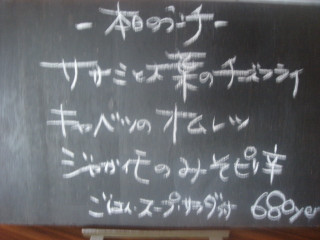 -本日のランチ-
ササミと大葉のチーズフライ
キャベツのオムレツ
ジャガイモのみそピリ辛
ごはん・スープ・サラダ付 680yen